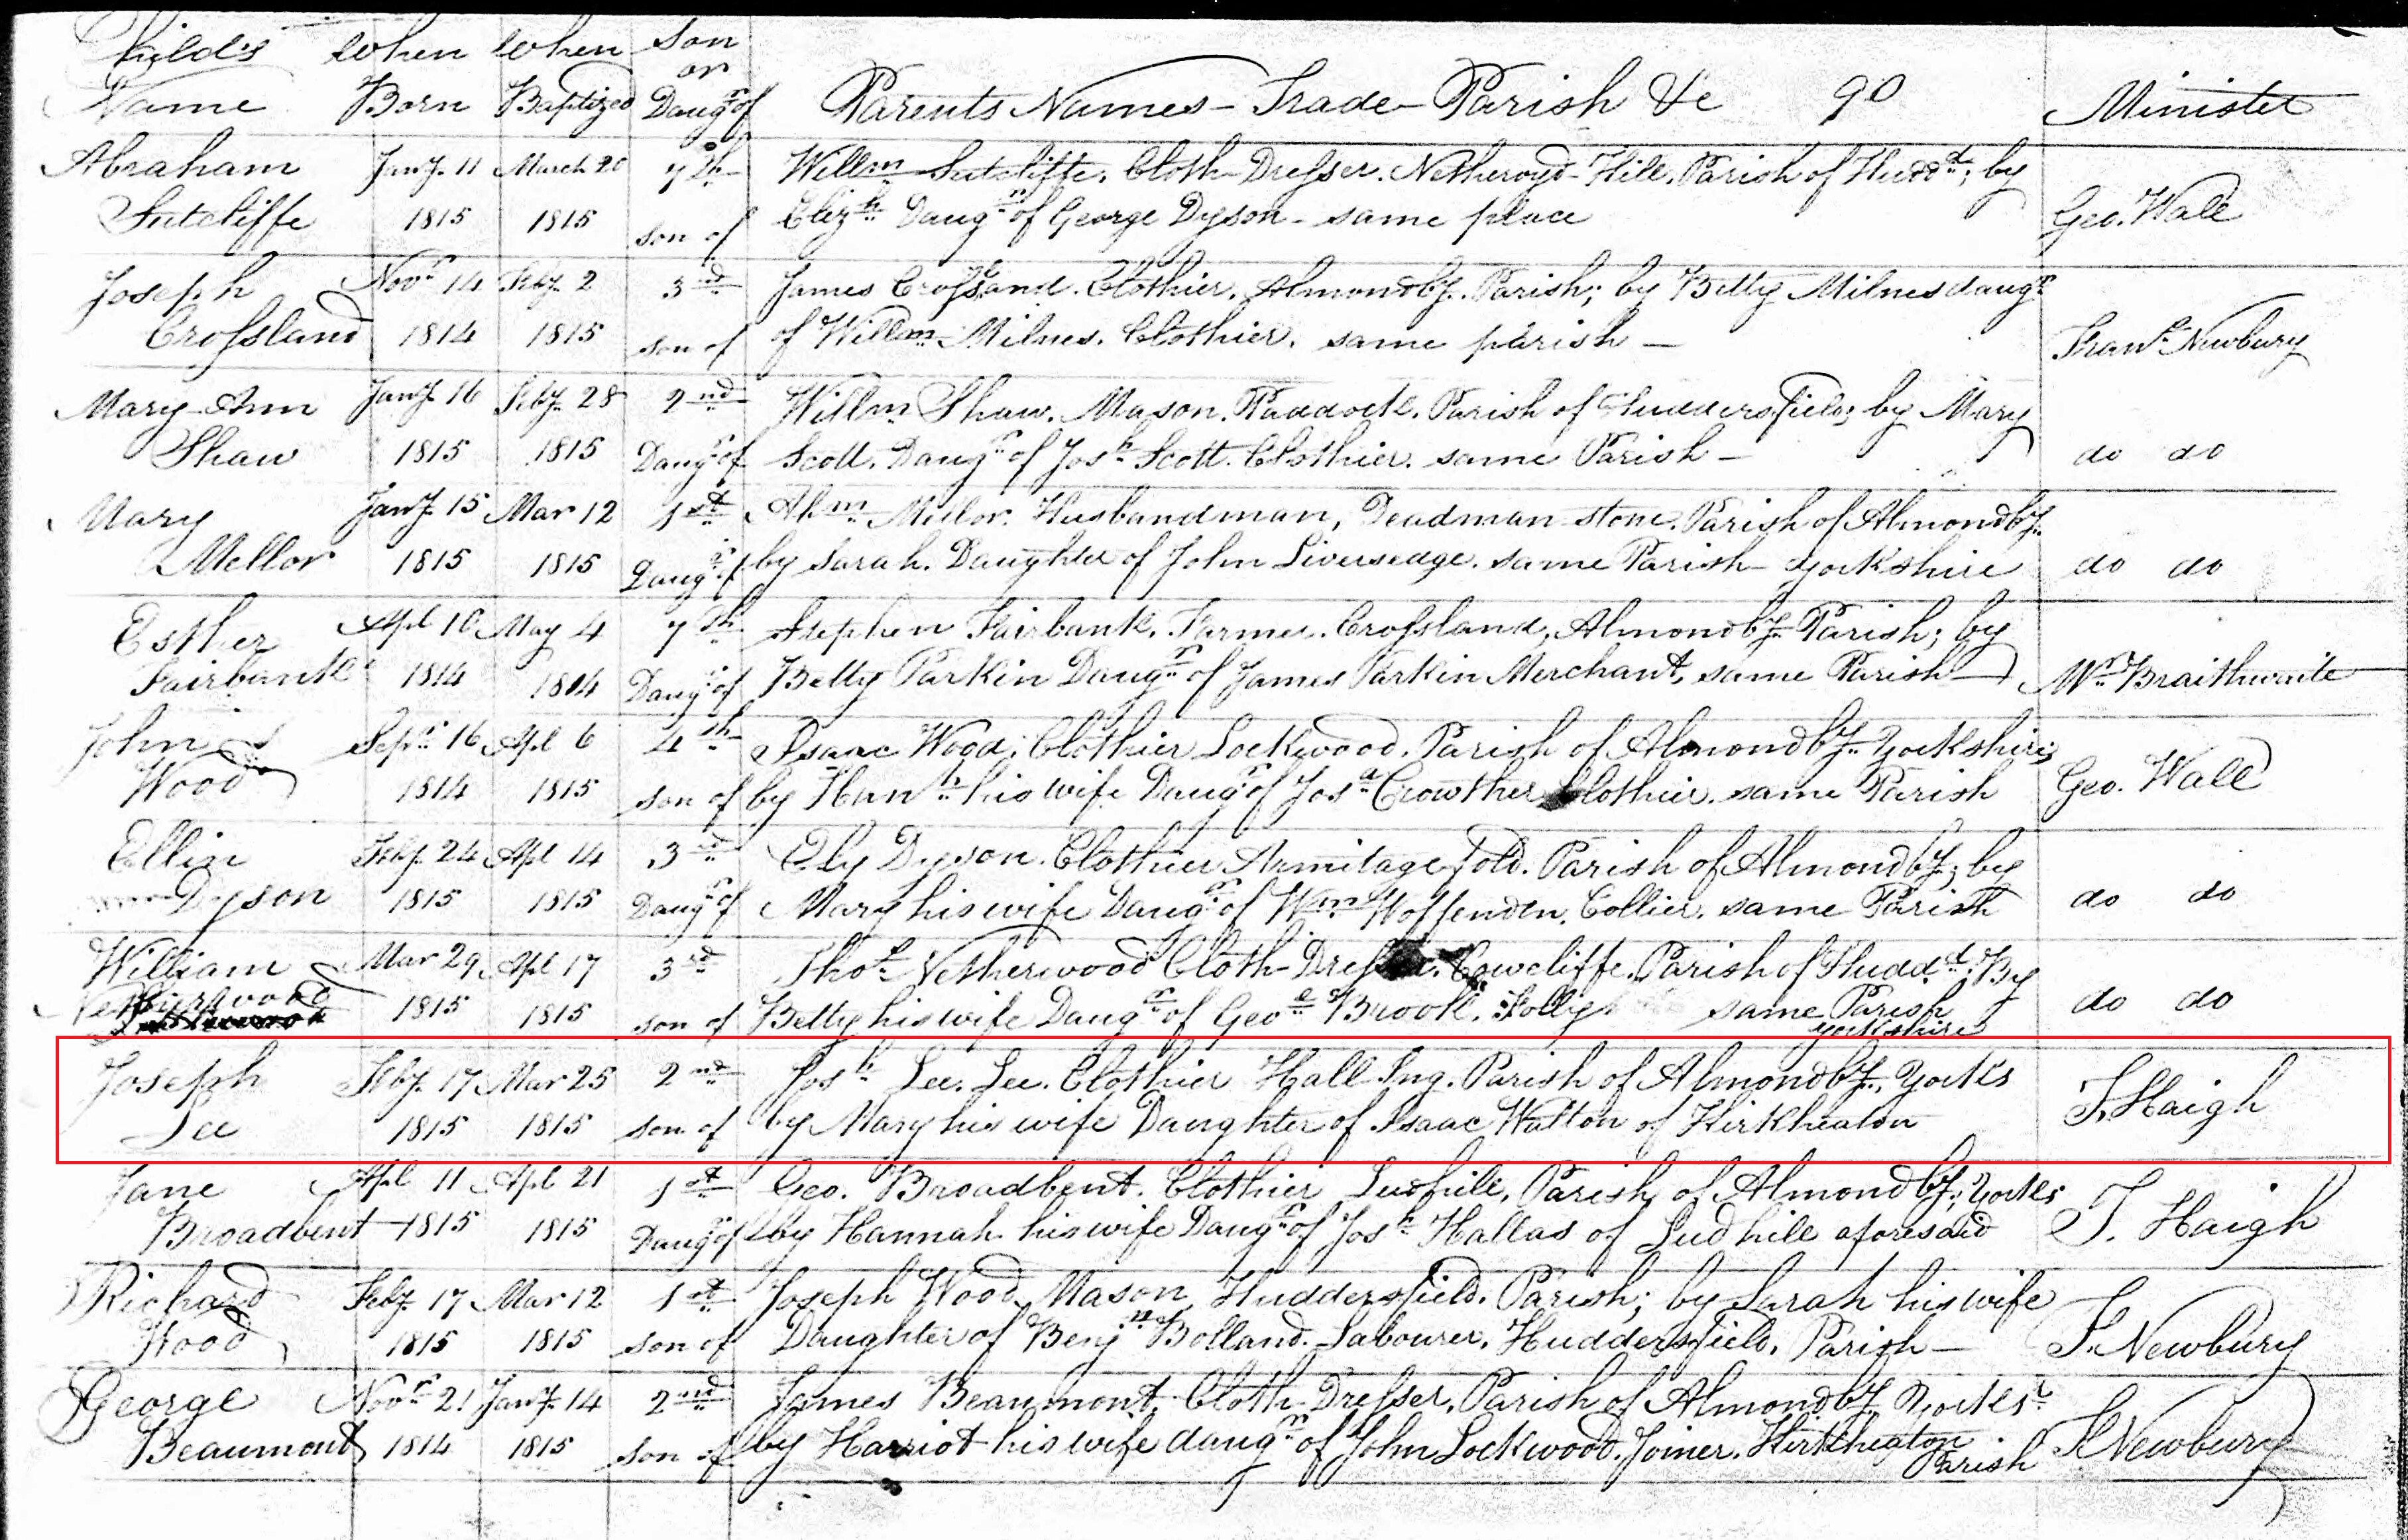 Child's When When Son
or
Name Born Baptized Daugr of Parents Names - Trade - Parish &c 90 Minister
Abraham Jany. 11 March 20 7th Willm Sutcliffe. Cloth-Dresser. Netheroyd-Hill. Parish of Huddd; by
Sutcliffe 1815 1815 son of Elizth Daugr of George Dyson - same place Geo. Wall
Joseph Novr 14 Feby. 2 3rd James Crossland. Clothier. Almondby. Parish; by Betty Milnes daugr
Crossland 1814 1815 son of of Willm Milnes. Clothier. same parish — Frans Newbury
Mary Ann Jany. 16 Feby. 28 2nd Willm Shaw. Mason. Paddock. Parish of Huddersfield; by Mary
Shaw 1815 1815 Daugr of Scott. Daugr of Josh Scott. Clothier. same Parish — do do
Mary Jany. 15 Mar 12 1st Abm Mellor. Husbandman, Deadman stone. Parish of Almondby.
Mellor 1815 1815 Daugr of by Sarah. Daughter of John Liversedge. same Parish - Yorkshire do do
Esther Apl 10 May 4 7th Stephen Fairbank. Farmer. Crossland, Almondby. Parish; by
Fairbank 1814 1814 Daugr of Betty Parkin Daugr of James Parkin Merchant, same Parish — Wm Braithwaite
John Sepr 16 Apl 6 4th Isaac Wood; Clothier Lockwood. Parish of Almondby. Yorkshire;
Wood 1814 1815 son of by Hanh his wife Daugr of Josa Crowther Clothier. same Parish Geo. Wall
Ellin Feby. 24 Apl 14 3rd Ely Dyson. Clothier Armitage fold. Parish of Almondby; by
Dyson 1815 1815 Daugr of Mary his wife Daugr of Wm Woffenden. Collier. same Parish do do
William Mar 29 Apl 17 3rd Thos Netherwood Cloth-Dresser. Cowcliffe. Parish of Huddd. By
Netherwood 1815 1815 son of Betty his wife Daugr of Geoe Brook. same Parish do do
Yorkshire
Joseph Feby. 17 Mar 25 2nd Josh Lee. Lee. Clothier Hall-Ing. Parish of Almondby., Yorks
Lee 1815 1815 son of by Mary his wife Daughter of Isaac Watton of Kirkheaton J. Haigh
Jane Apl 11 Apl 21 1st Geo. Broadbent. Clothier Ludhill, Parish of Almondby.; Yorks
Broadbent 1815 1815 Daugr of by Hannah his wife Daugr of Josh Hallas of Ludhill aforesaid J. Haigh
Richard Feby. 17 Mar 12 1st Joseph Wood Mason Huddersfield. Parish; by Sarah his wife
Wood 1815 1815 son of Daughter of Benjn Bolland. Labourer. Huddersfield. Parish — F. Newbury
George Novr 21 Jany. 14 2nd James Beaumont. Cloth-Dresser. Parish of Almondby. Yorks.
Beaumont 1814 1815 son of by Harriot his wife daugr of John Lockwood. Joiner. Kirkheaton F. Newbury
Parish